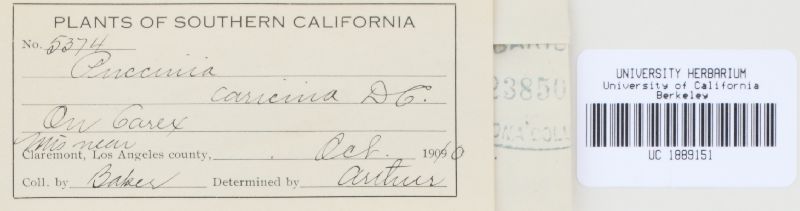 PLANTS OF SOUTHERN CALIFORNIA
No. 5374
Puccinia
caricina DC.
On Carex
Mts near
Claremont, Los Angeles county, Oct. 1909
Coll. by Baker Determined by Arthur
23850
UNIVERSITY HERBARIUM
University of California
Berkeley
UC 1889151